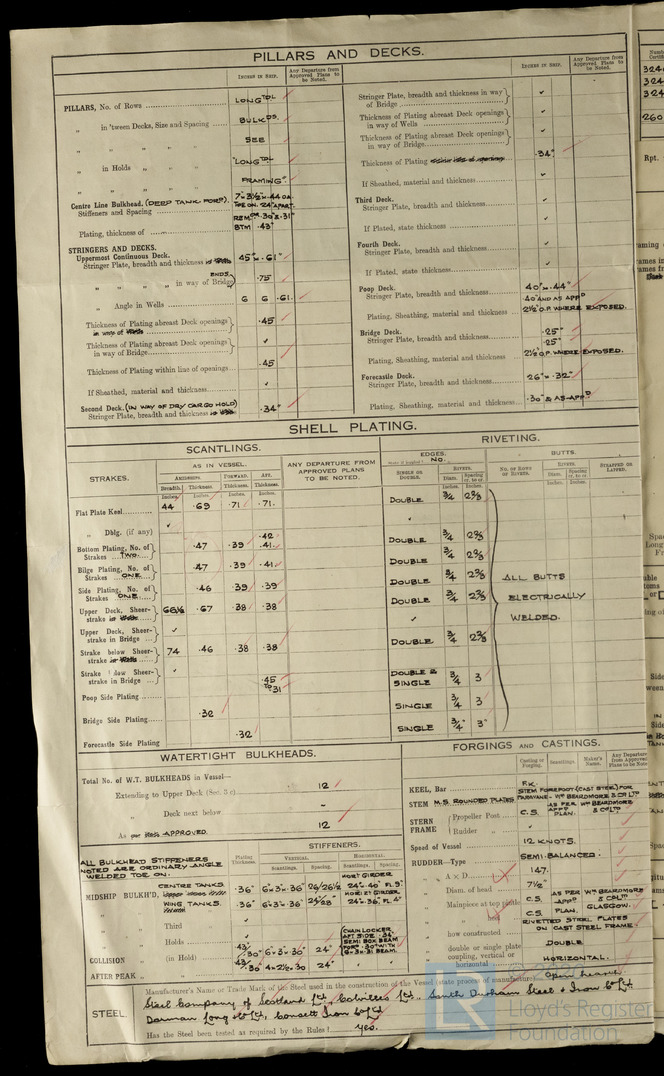 PILLARS AND DECKS.
INCHES IN SHIP.
Any Departure from Approved Plans to be Noted.
PILLARS, No. of Rows
LONGTDL
„ in 'tween Decks, Size and Spacing
BULKDS.
SEE
„ in Holds
"LONGTDL
FRAMING".
Centre Line Bulkhead. (DEEP TANK FORD).
Stiffeners and Spacing
Plating, thickness of
BTM .43"
STRINGERS AND DECKS.
Uppermost Continuous Deck.
Stringer Plate, breadth and thickness
45" x .61"
ENDS
„ „ „ „ in way of Bridge
.75
„ Angle in Wells
6 6 .61
Thickness of Plating abreast Deck openings in way of Wells
.45
Thickness of Plating abreast Deck openings in way of Bridge
Thickness of Plating within line of openings
.45
If Sheathed, material and thickness
Second Deck. (IN WAY OF DRY CARGO HOLD)
Stringer Plate, breadth and thickness
.34"
INCHES IN SHIP.
Any Departure from Approved Plans to be Noted.
Stringer Plate, breadth and thickness in way of Bridge
Thickness of Plating abreast Deck openings in way of Wells
Thickness of Plating abreast Deck openings in way of Bridge
Thickness of Plating
.34"
If Sheathed, material and thickness
Third Deck.
Stringer Plate, breadth and thickness
If Plated, state thickness
Fourth Deck.
Stringer Plate, breadth and thickness
If Plated, state thickness
Poop Deck.
Stringer Plate, breadth and thickness
40" x .44"
.40" AND AS APPD
Plating, Sheathing, material and thickness
2½" O.P. WHERE EXPOSED.
Bridge Deck.
Stringer Plate, breadth and thickness
.25"
.25"
Plating, Sheathing, material and thickness
2½" O.P. WHERE EXPOSED.
Forecastle Deck.
Stringer Plate, breadth and thickness
26" x .32"
Plating, Sheathing, material and thickness
.30" & AS APPD
SHELL PLATING.
SCANTLINGS.
RIVETING.
STRAKES.
AS IN VESSEL.
ANY DEPARTURE FROM APPROVED PLANS TO BE NOTED.
AMIDSHIPS.
FORWARD.
AFT.
Breadth.
Thickness.
Thickness.
Thickness.
EDGES.
NO.
BUTTS.
SINGLE OR DOUBLE.
RIVERS.
Diam.
Spacing cr. to cr.
NO. OF ROWS OF RIVETS.
RIVETS.
Diam.
Spacing cr. to cr.
STRAPPED OR LAPPED.
Inches.
Flat Plate Keel 44 .69 .71 .71
DOUBLE ¾ 2⅝
„ Dblg. (if any)
.42
Bottom Plating, No. of Strakes TWO .47 .39 .41
DOUBLE ¾ 2⅝
Bilge Plating, No. of Strakes ONE .47 .39 .41
DOUBLE ¾ 2⅝
Side Plating, No. of Strakes ONE .46 .39 .39
DOUBLE ¾ 2⅝
Upper Deck, Sheerstrake 66½ .67 .38 .38
DOUBLE ¾ 2⅝
Upper Deck, Sheerstrake in Bridge
Strake below Sheerstrake 74 .46 .38 .38
DOUBLE ¾ 2⅝
Strake below Sheerstrake in Bridge
Poop Side Plating .45 TO .31
DOUBLE & SINGLE ¾ 3
Bridge Side Plating .32
SINGLE ¾ 3
Forecastle Side Plating .32
SINGLE ¾" 3"
ALL BUTTS
ELECTRICALLY
WELDED.
WATERTIGHT BULKHEADS.
Total No. of W.T. BULKHEADS in Vessel—
Extending to Upper Deck (Sec. 3 c) 12
„ Deck next below –
As APPROVED. 12
ALL BULKHEAD STIFFENERS
NOTED ARE ORDINARY ANGLE
WELDED TOE ON.
Plating Thickness.
STIFFENERS.
VERTICAL.
HORIZONTAL.
Scantlings.
Spacing.
Scantlings.
Spacing.
HORT GIRDER
MIDSHIP BULK'D, CENTRE TANKS. .36" 6 x 3 x .36" 26/26½ 24" x .40" FL. 9"
HORIZT GIRDER
„ WING TANKS. .36" 6 x 3 x .36" 24/28" 24" x .36" FL. 4"
„ Third
„ Holds
CHAIN LOCKER
AFT SIDE .34"
SEMI BOX BEAM
FORD .30" WITH
6 x 3 x .31 BEAM.
COLLISION „ (in Hold) .43/.30" 6 x 3 x .30 24"
AFTER PEAK „ .43/.30" 4 x 2½ x .30 24"
FORGINGS AND CASTINGS.
Casting or Forging.
Scantlings.
Maker's Name.
Any Departure from Approved Plans to be Noted
KEEL, Bar
STEM M.S. ROUNDED PLATES
STEM FOREFOOT (CAST STEEL) FOR
PARAVANE – WM BEARDMORE & CO LTD
STERN FRAME
Propeller Post C.S. AS PER WM BEARDMORE
PLAN. & CO LTD
Rudder „
Speed of Vessel 12 KNOTS.
RUDDER—Type SEMI-BALANCED.
„ A x D 147.
„ Diam. of head 7½"
„ Mainpiece at top C.S. AS PER WM BEARDMORE
APPD & CO LTD
C.S. PLAN. GLASGOW.
„ how constructed RIVETTED STEEL PLATES
ON CAST STEEL FRAME.
„ double or single plate DOUBLE
„ coupling, vertical or horizontal HORIZONTAL.
STEEL.
Manufacturer's Name or Trade Mark of the Steel used in the construction of the Vessel (state process of manufacture) Open hearth.
Steel Company of Scotland Ltd, Colvilles Ltd, South Durham Steel & Iron Co Ltd
Dorman Long & Co Ltd, Consett Iron Co Ltd
Has the Steel been tested as required by the Rules? Yes.
Lloyd's Register
Foundation